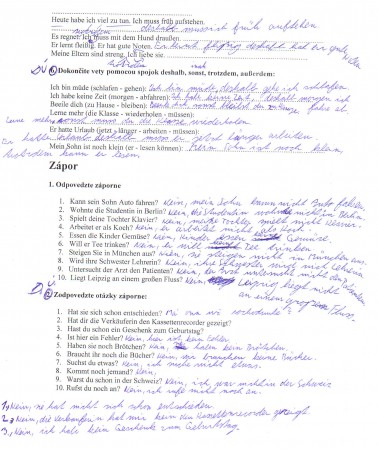 Heute habe ich viel zu tun. Ich muss früh aufstehen.
deshalb muss ich früh aufstehen
Es regnet. Ich muss mit dem Hund draußen.
Er lernt fleißig. Er hat gute Noten. Er lernt fleißig deshalb hat er gute Noten
Meine Eltern sind streng. Ich liebe sie.
trotzdem
Dokončite vety pomocou spojok deshalb, sonst, trotzdem, außerdem:
Ich bin müde (schlafen - gehen) Ich bin müde, deshalb gehe ich schlafen
Ich habe keine Zeit (morgen - abfahren) Ich habe keine Zeit, deshalb morgen ich
Beeile dich (zu Hause - bleiben) Beeile dich sonst bleibst du zu Hause fahre ab.
Lerne mehr (die Klasse - wiederholen - müssen)
Lerne mehr sonst muss du die Klasse wiederholen
Er hatte Urlaub (jetzt - länger - arbeiten - müssen):
Er hatte Urlaub deshalb muss er jetzt länger arbeiten.
Mein Sohn ist noch klein (er - lesen können) Mein Sohn ist noch klein,
trotzdem kann er lesen
Zápor
1. Odpovedzte záporne
1. Kann sein Sohn Auto fahren? Nein, mein Sohn kann nicht Auto fahren
2. Wohnte die Studentin in Berlin? Nein, die Studentin wohnte nicht in Berlin.
3. Spielt deine Tochter Klavier? Nein, meine Tochter spielt nicht Klavier.
4. Arbeitet er als Koch? Nein, er arbeitet nicht als Koch.
5. Essen die Kinder Gemüse? Nein, Kinder essen keine Gemüse.
6. Will er Tee trinken? Nein, er will keine trinken
7. Steigen Sie in München aus? Nein, sie steigen nicht in München aus.
8. Wird ihre Schwester Lehrerin? Nein, ihre Schwester wird nicht Lehrerin
9. Untersucht der Arzt den Patienten? Nein, der Arzt untersucht nicht den Patienten
10. Liegt Leipzig an einem großen Fluss? Nein, Leipzig liegt nicht an
einem großen Fluss.
Zodpovedzte otázky záporne:
1. Hat sie sich schon entschieden?
2. Hat dir die Verkäuferin den Kassettenrecorder gezeigt?
3. Hast du schon ein Geschenk zum Geburtstag?
4. Ist hier ein Fehler? Nein, hier ist kein Fehler
5. Haben sie noch Brötchen? Nein, haben kein Brötchen.
6. Braucht ihr noch die Bücher? Nein, wir brauchen keine Bücher.
7. Suchst du etwas? Nein, ich suche nicht etwas.
8. Kommt noch jemand? Nein,
9. Warst du schon in der Schweiz? Nein, ich war nicht in der Schweiz
10. Rufst du noch an? Nein, ich rufe nicht noch an.
1, Nein, sie hat nicht sich schon entschieden.
2, Nein, die Verkäuferin hat mir kein den Kassettenrecorder gezeigt
3, Nein, ich habe kein Geschenk zum Geburtstag